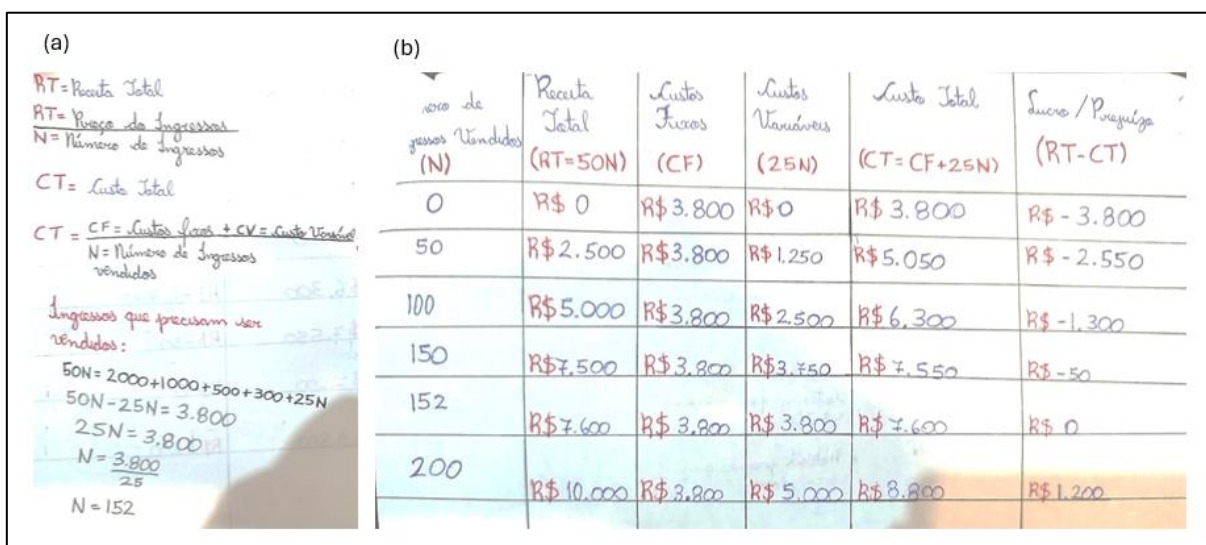 (a)
RT= Receita Total
RT= Preço do Ingressos
N= Número de Ingressos
CT= Custo Total
CT = CF= Custos fixos + CV= Custo Variável
N= Número de Ingressos
vendidos
Ingressos que precisam ser
vendidos:
50N= 2000+1000+500+300+25N
50N-25N= 3.800
25N= 3.800
N= 3.800
25
N= 152
(b)
de
Vendidos
(N)
Receita
Total
(RT=50N)
Custos
Fixos
(CF)
Custos
Variáveis
(25N)
Custo Total
(CT= CF+25N)
Lucro / Prejuízo
(RT-CT)
0 R$ 0 R$ 3.800 R$ 0 R$ 3.800 R$ - 3.800
50 R$ 2.500 R$ 3.800 R$ 1.250 R$ 5.050 R$ - 2.550
100 R$ 5.000 R$ 3.800 R$ 2.500 R$ 6.300 R$ -1.300
150 R$ 7.500 R$ 3.800 R$ 3.750 R$ 7.550 R$ -50
152 R$ 7.600 R$ 3.800 R$ 3.800 R$ 7.600 R$ 0
200 R$ 10.000 R$ 3.800 R$ 5.000 R$ 8.800 R$ 1.200